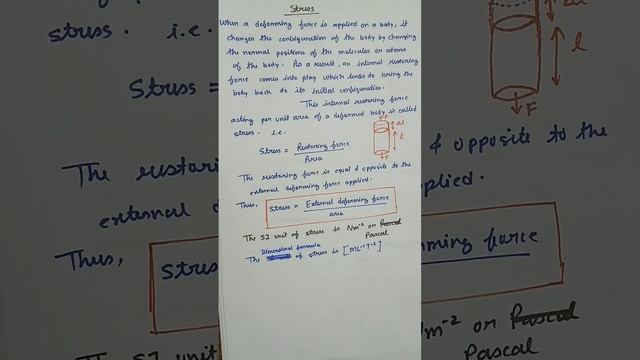 Stress
When a deforming force is applied on a body, it
changes the configuration of the body by changing
the normal positions of the molecules or atoms
of the body. As a result, an internal restoring
force comes into play which tends to bring the
body back to its initial configuration.
This internal restoring force
acting per unit area of a deformed body is called
stress. i.e.
Stress = Restoring force
Area
F
Δl
l
F
The restoring force is equal & opposite to the
external deforming force applied.
Thus,
Stress = External deforming force
area
The SI unit of stress is Nm⁻² or Pascal
Pascal
Dimensional formula
The of stress is [ML⁻¹T⁻²]
stress. i.e.
Stress =
The restoring
external de
Thus,
Stress
The SI unit
Δl
l
F
& opposite to the
applied.
ming force
Nm⁻² or Pascal
Pascal